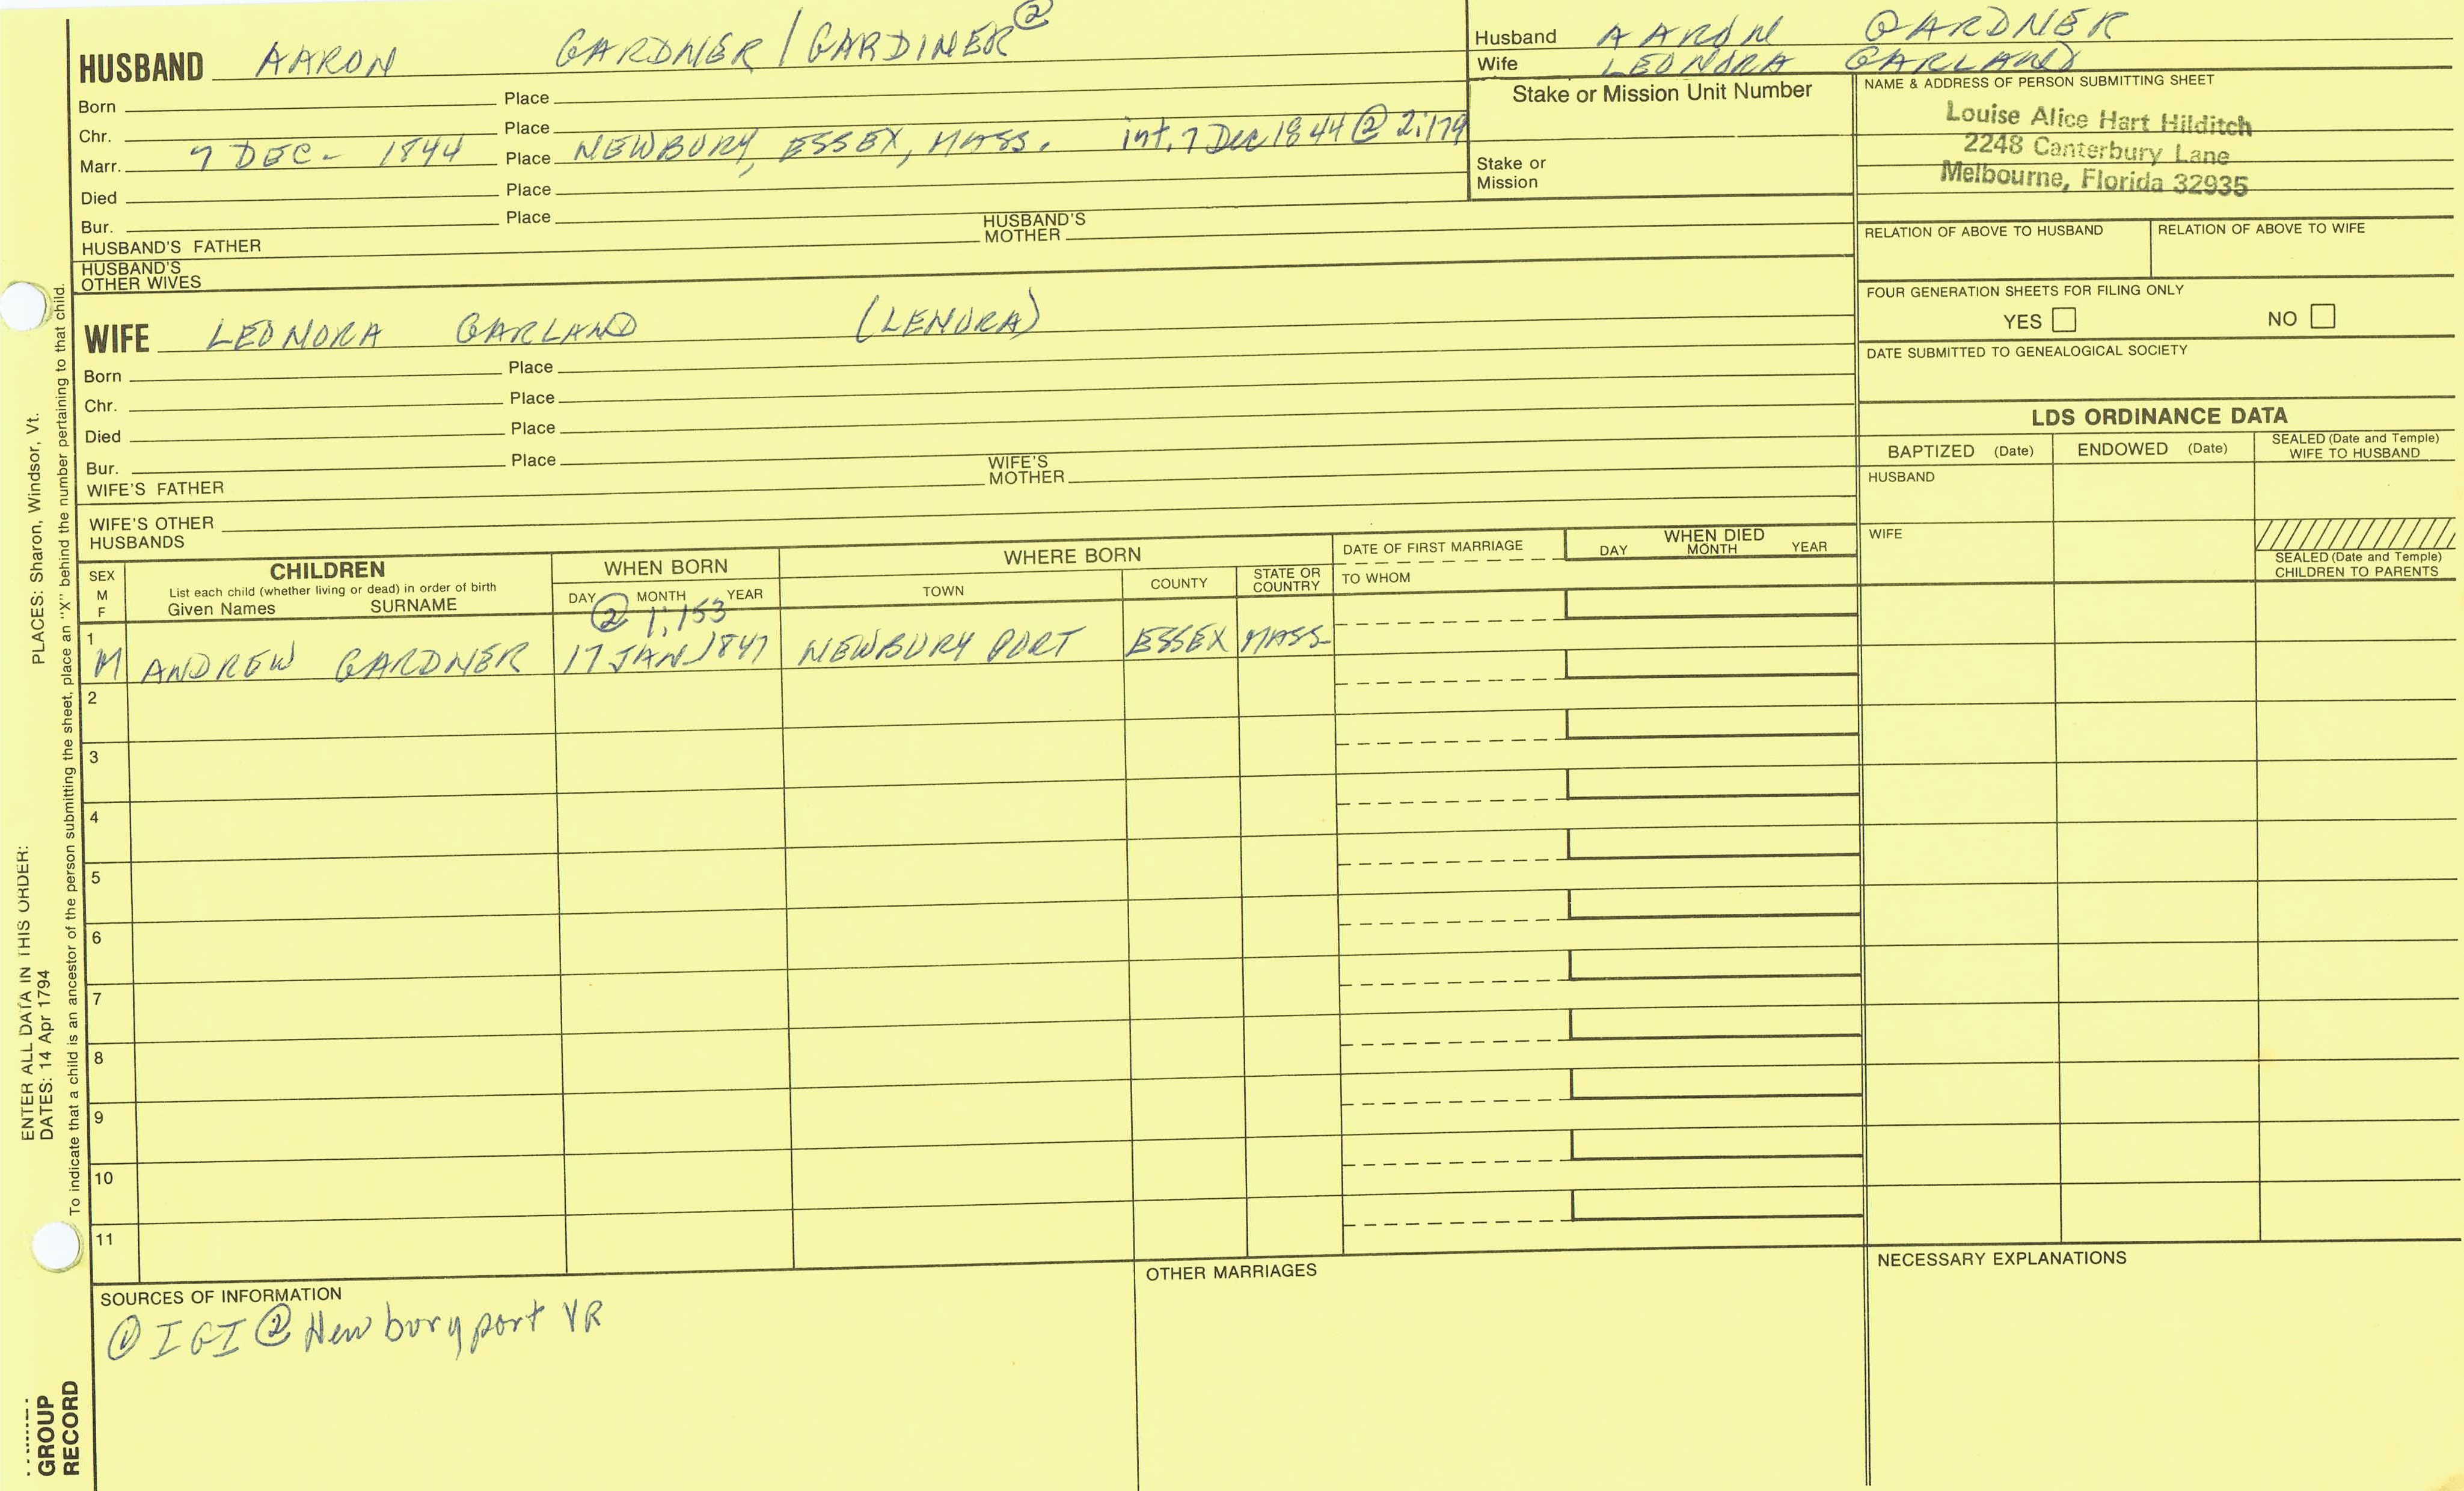 HUSBAND AARON GARDNER / GARDINER ②
Born Place
Chr. Place
Marr. 7 DEC - 1844 Place NEWBURY, ESSEX, MASS. int. 7 Dec 1844 ② 2:179
Died Place
Bur. Place
HUSBAND'S FATHER HUSBAND'S MOTHER
HUSBAND'S OTHER WIVES
Husband AARON GARDNER
Wife LEONORA GARLAND
Stake or Mission Unit Number
Stake or Mission
NAME & ADDRESS OF PERSON SUBMITTING SHEET
Louise Alice Hart Hilditch
2248 Canterbury Lane
Melbourne, Florida 32935
RELATION OF ABOVE TO HUSBAND RELATION OF ABOVE TO WIFE
FOUR GENERATION SHEETS FOR FILING ONLY
YES NO
DATE SUBMITTED TO GENEALOGICAL SOCIETY
WIFE LEONORA GARLAND (LENORA)
Born Place
Chr. Place
Died Place
Bur. Place
WIFE'S FATHER WIFE'S MOTHER
WIFE'S OTHER HUSBANDS
LDS ORDINANCE DATA
BAPTIZED (Date) ENDOWED (Date) SEALED (Date and Temple) WIFE TO HUSBAND
HUSBAND
WIFE
SEALED (Date and Temple) CHILDREN TO PARENTS
SEX M F
CHILDREN
List each child (whether living or dead) in order of birth
Given Names SURNAME
WHEN BORN
DAY MONTH YEAR
WHERE BORN
TOWN COUNTY STATE OR COUNTRY
DATE OF FIRST MARRIAGE
TO WHOM
WHEN DIED
DAY MONTH YEAR
② 1:153
1 M ANDREW GARDNER 17 JAN 1847 NEWBURY PORT ESSEX MASS
2
3
4
5
6
7
8
9
10
11
SOURCES OF INFORMATION
① IGI ② Newburyport VR
OTHER MARRIAGES
NECESSARY EXPLANATIONS
ENTER ALL DATA IN THIS ORDER:
PLACES: Sharon, Windsor, Vt.
DATES: 14 Apr 1794
To indicate that a child is an ancestor of the person submitting the sheet, place an "X" behind the number pertaining to that child.
GROUP
RECORD